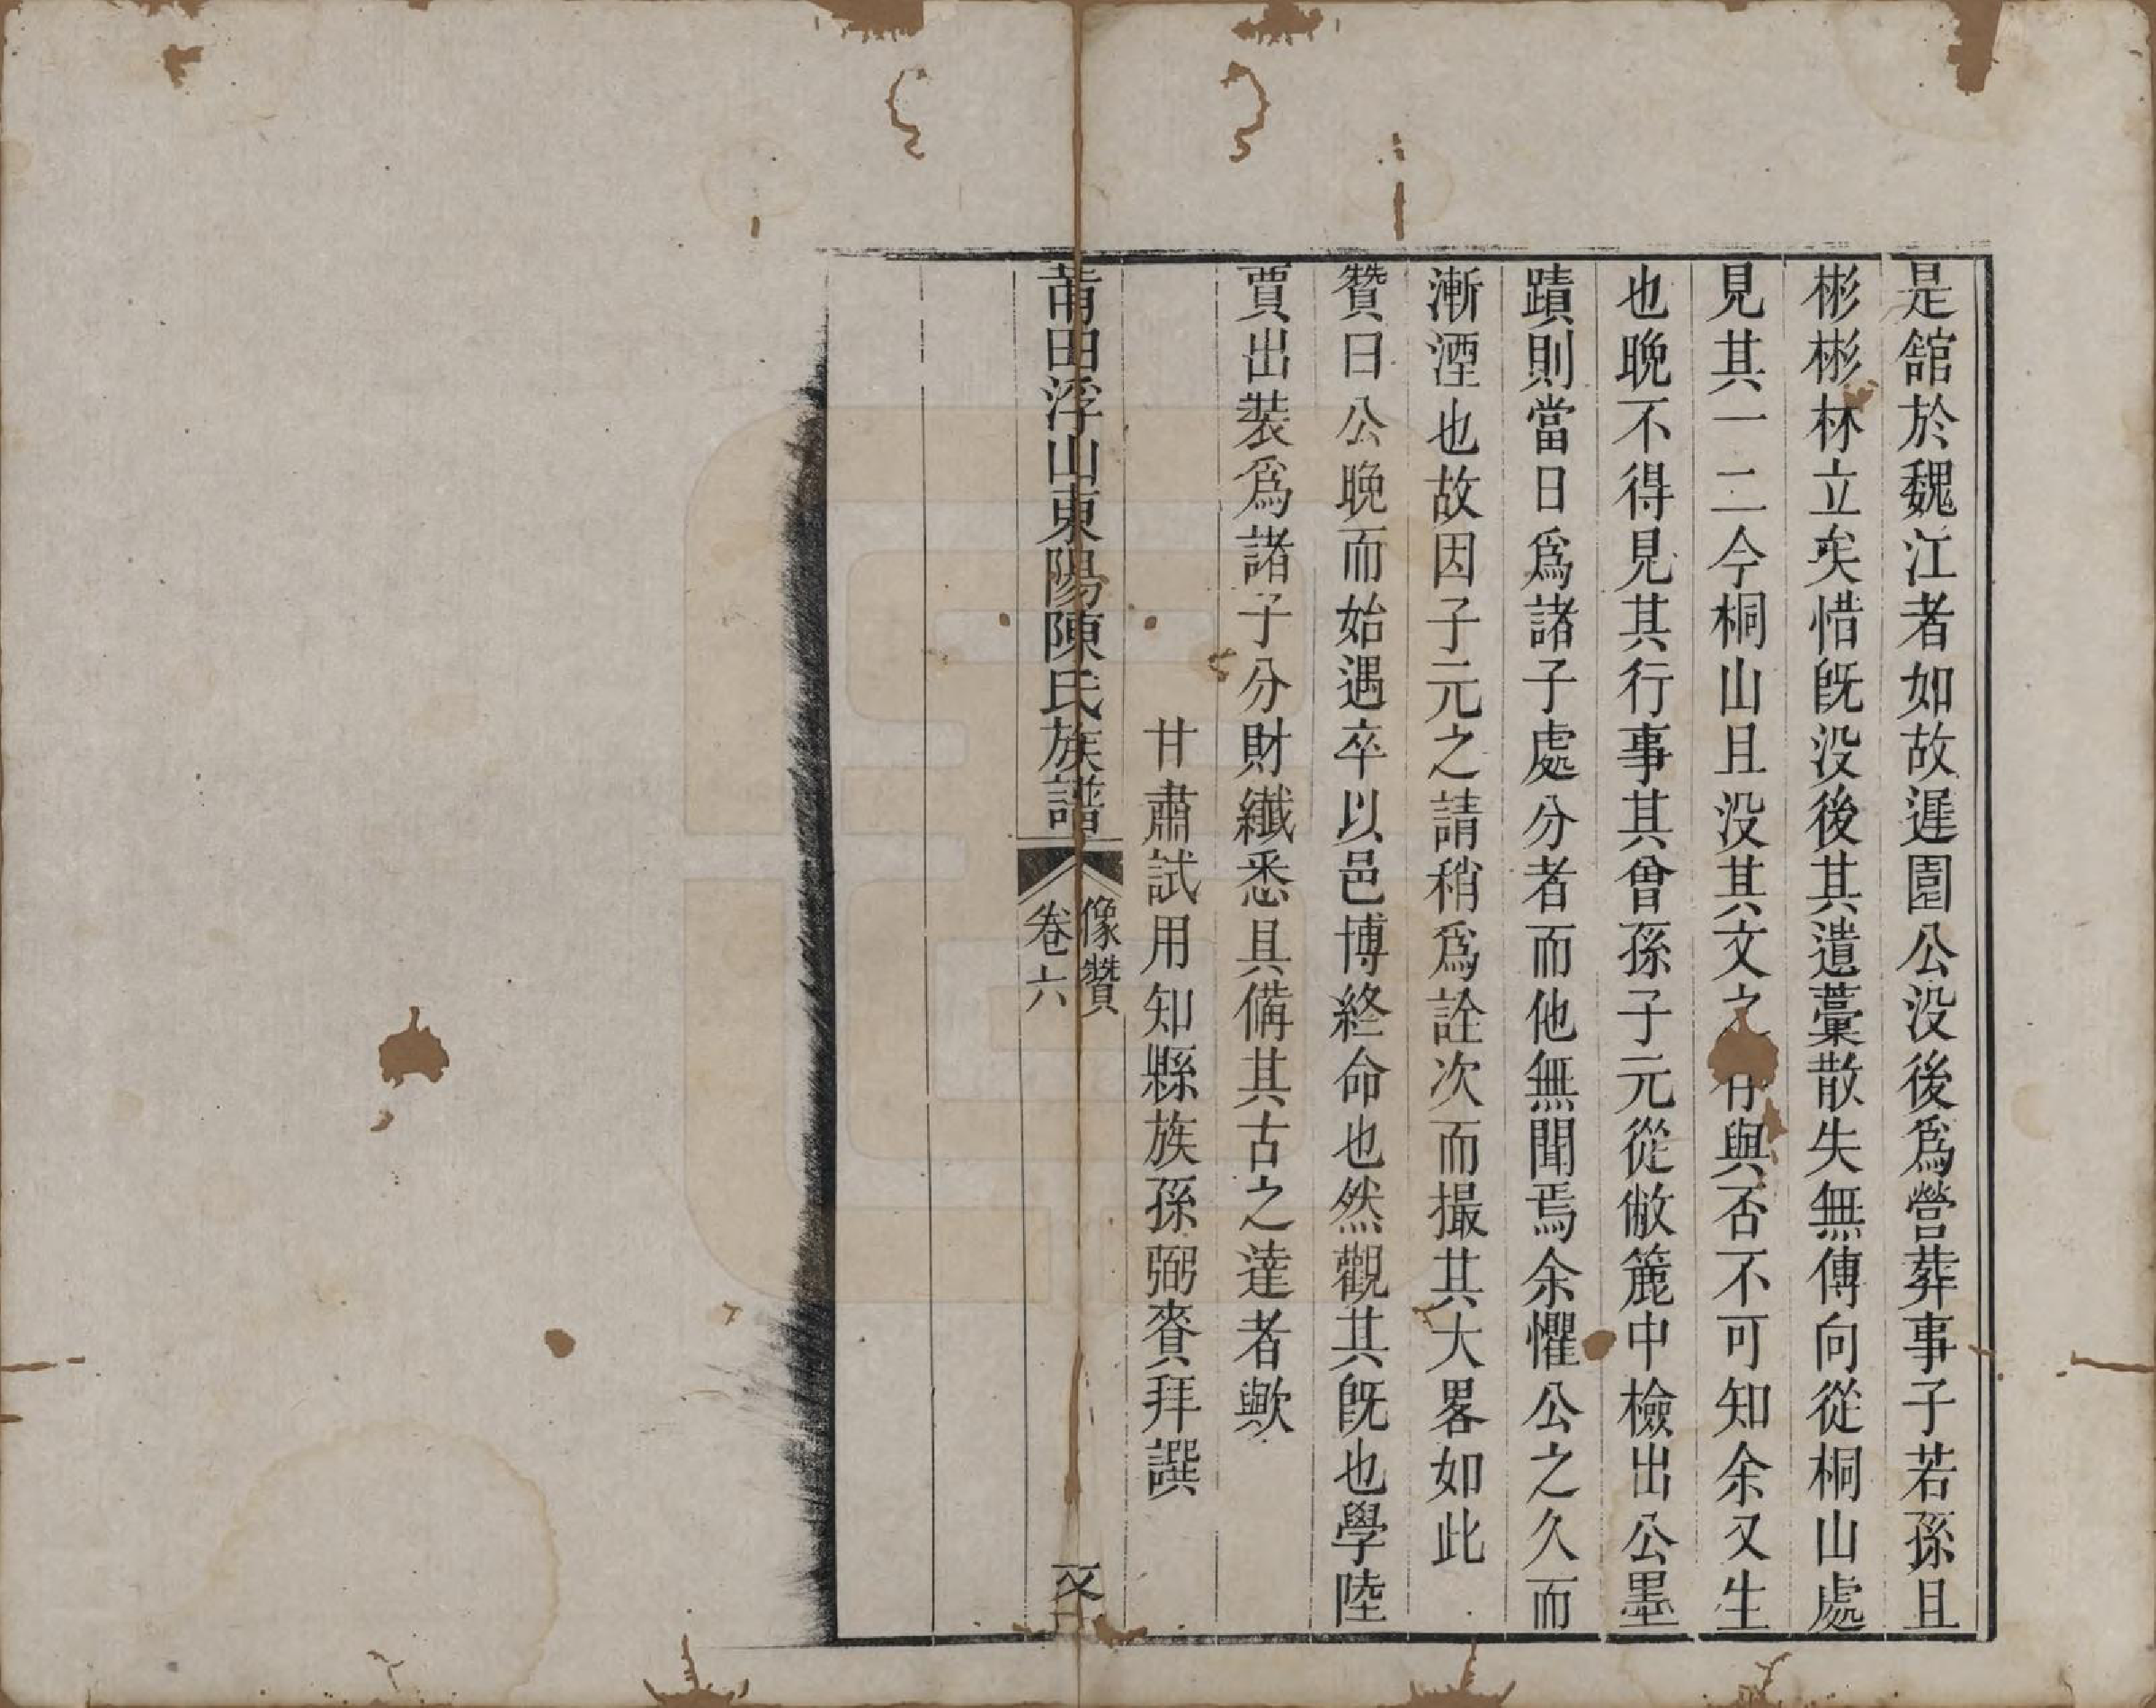 是舘於魏江者如故遲園公没後爲營葬事子若孫且
彬彬林立矣惜旣没後其遺藁散失無傳向從桐山處
見其一二今桐山且没其文之存與否不可知余又生
也晚不得見其行事其曾孫子元從敝簏中檢出公墨
蹟則當日爲諸子處分者而他無聞焉余懼公之久而
漸湮也故因子元之請稍爲詮次而撮其大畧如此
贊曰公晚而始遇卒以邑博終命也然觀其旣也學陸
賈出裝爲諸子分財纖悉具備其古之達者歟
甘肅試用知縣族孫弼賚拜譔
莆田浮山東陽陳氏族譜
像贊
卷六